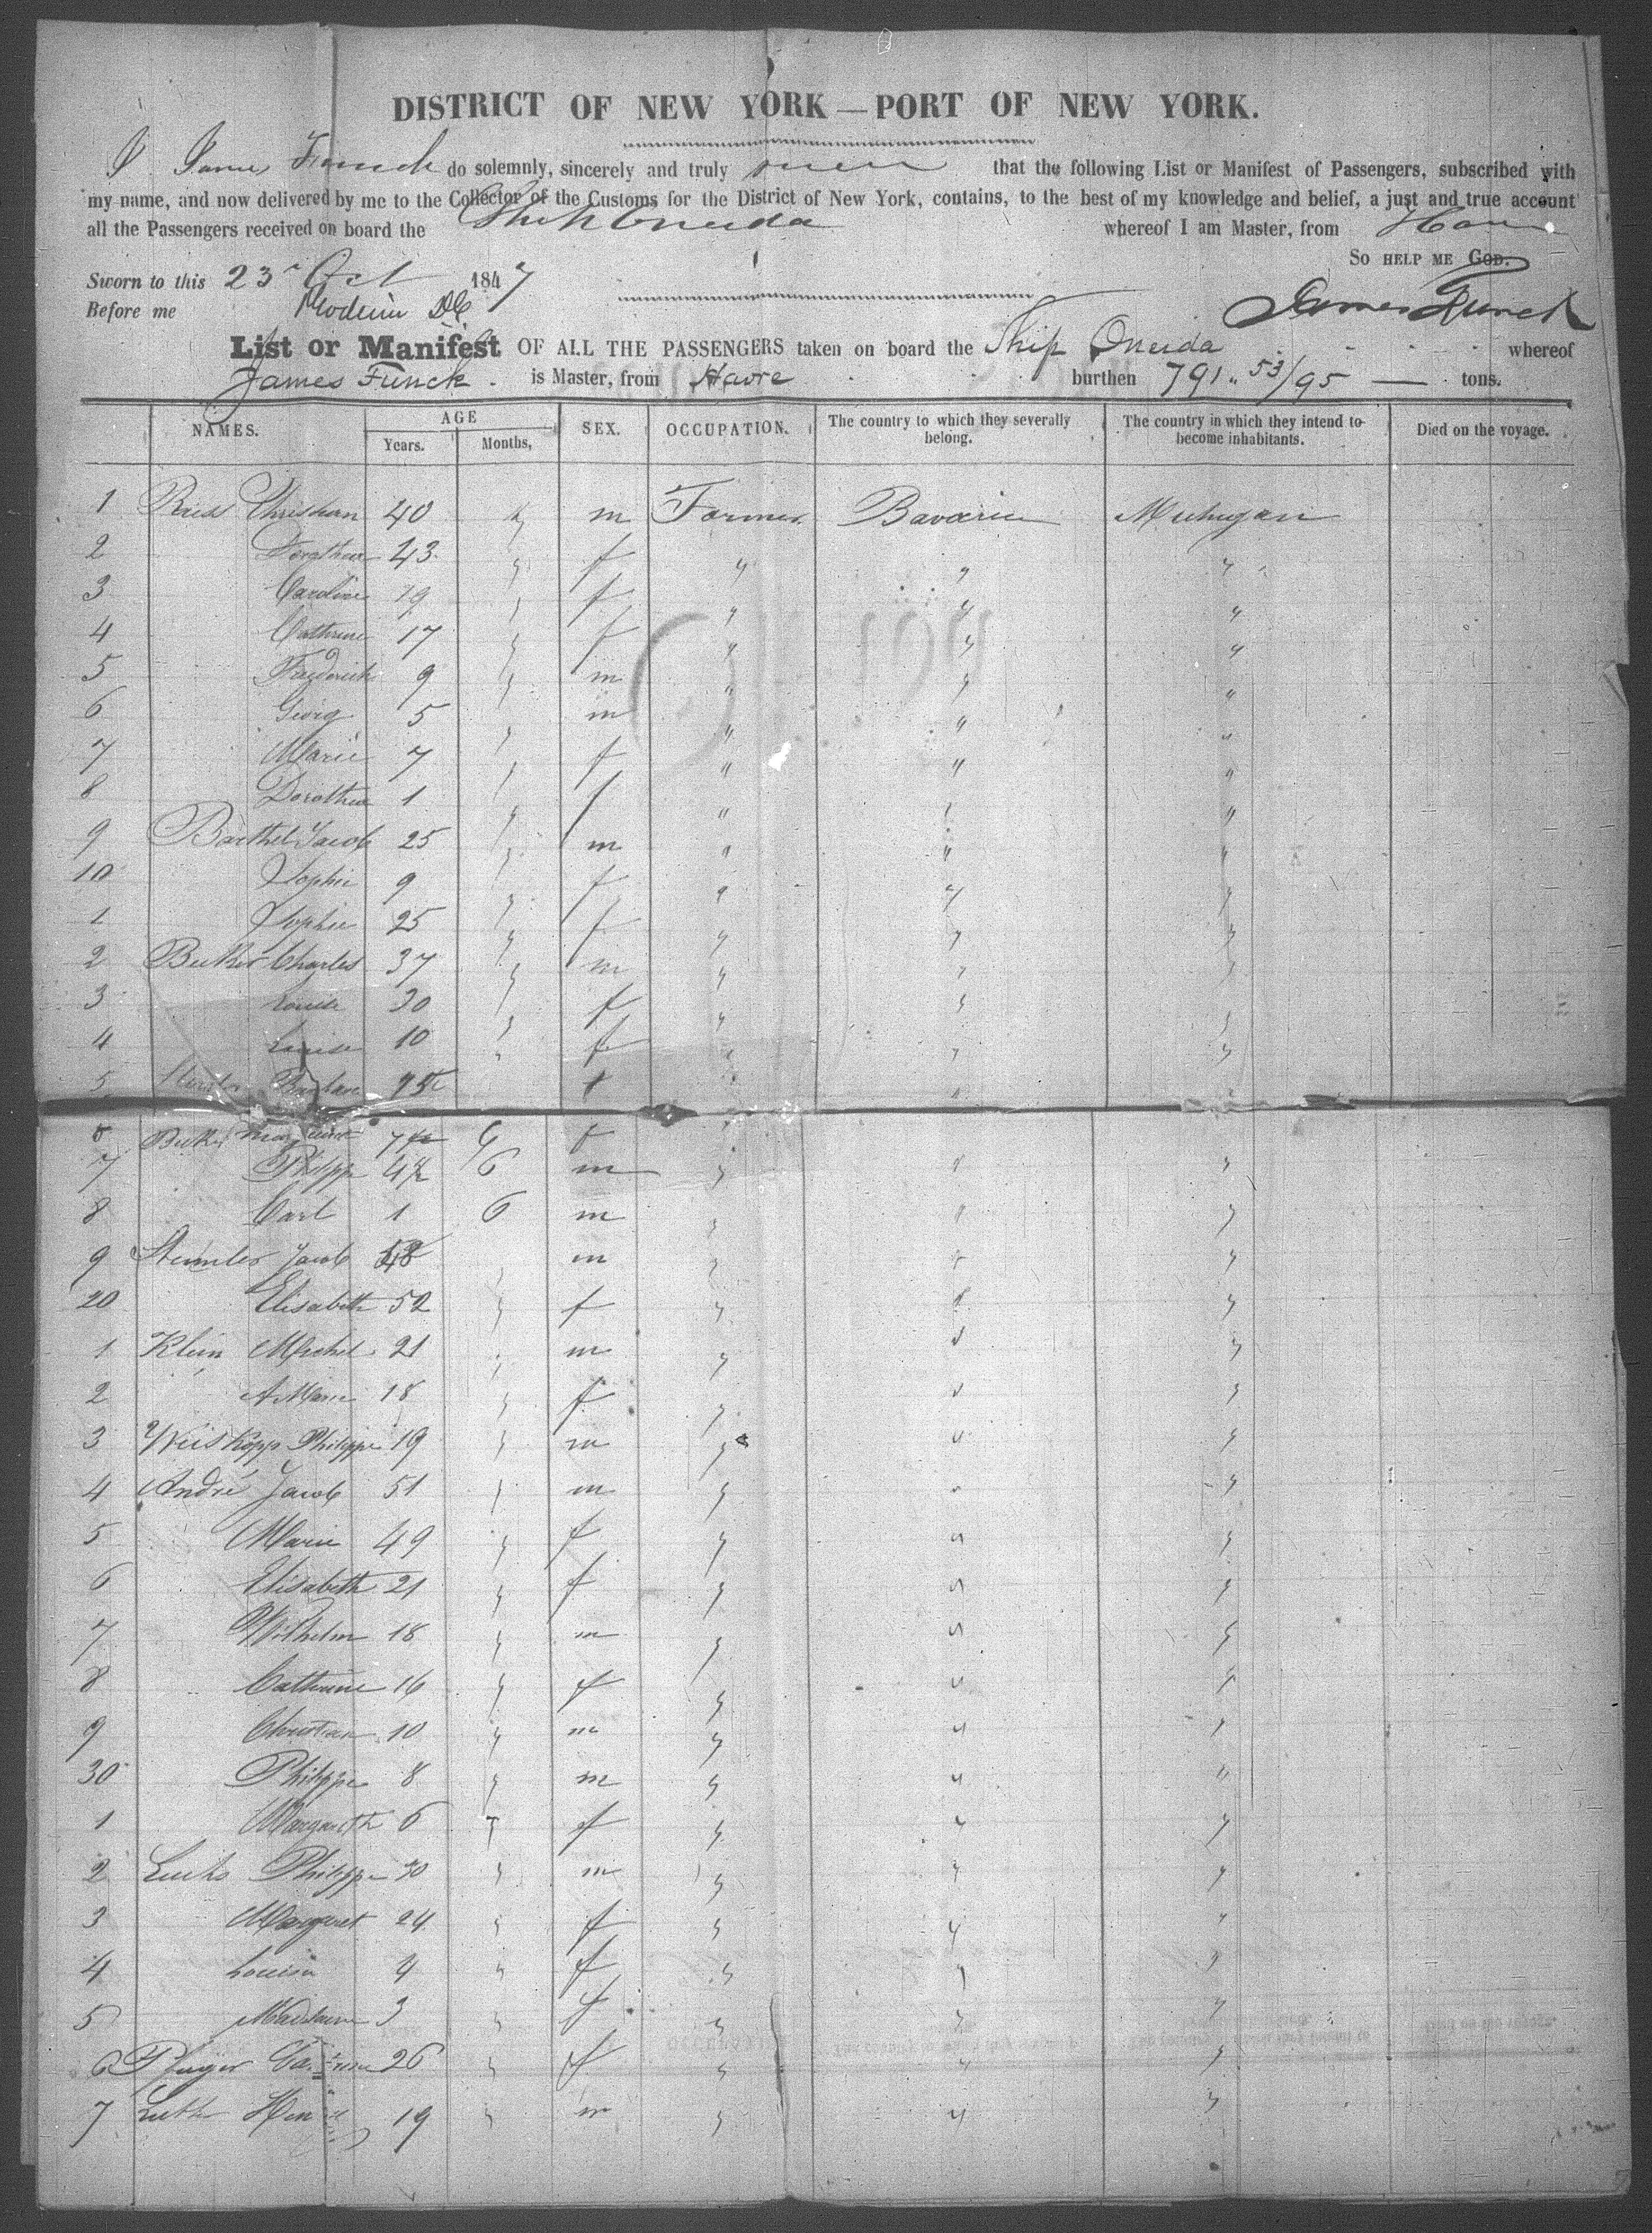 DISTRICT OF NEW YORK — PORT OF NEW YORK.
I James Funck do solemnly, sincerely and truly swear that the following List or Manifest of Passengers, subscribed with
my name, and now delivered by me to the Collector of the Customs for the District of New York, contains, to the best of my knowledge and belief, a just and true account
all the Passengers received on board the Ship Oneida whereof I am Master, from Havre
SO HELP ME GOD.
Sworn to this 23 Oct 1847
Before me
James Funck
List or Manifest OF ALL THE PASSENGERS taken on board the Ship Oneida whereof
James Funck is Master, from Havre burthen 791 " 53/95 tons.
NAMES. AGE SEX. OCCUPATION. The country to which they severally belong. The country in which they intend to become inhabitants. Died on the voyage.
Years. Months,
1 Christian 40 " m Farmer Bavaria Michigan
2 Dorothea 43 " f " " "
3 Caroline 19 " f " " "
4 Cathrine 17 " f " " "
5 Frederich 9 " m " " "
6 Georg 5 " m " " "
7 Marie 7 " f " " "
8 Dorothea 1 " f " " "
9 Barthel Jacob 25 " m " " "
10 Sophie 9 " f " " "
1 Sophie 25 " f " " "
2 Becker Charles 37 " m " " "
3 30 " f " " "
4 Louise 10 " f " " "
5 Barbara f " "
6 Becker 6 f
7 Philipp 6 m " " "
8 Carl 1 6 m " " "
9 Stemler Jacob " m " " "
20 Elisabeth 52 " f " " "
1 Klein Michel 21 " m " " "
2 A Marie 18 " f " " "
3 Weiskopp Philippe 19 " m " " "
4 André Jacob 51 " m " " "
5 Marie 49 " f " " "
6 Elisabeth 21 " f " " "
7 Wilhelm 18 " m " " "
8 Cathrine 16 " f " " "
9 Christian 10 " m " " "
30 Philippe 8 " m " " "
1 Margareth 6 " f " " "
2 Philippe 30 " m " " "
3 Margaret 24 " f " " "
4 Louisa 4 " f " " "
5 3 " f " " "
6 26 " f " " "
7 19 " m " " "